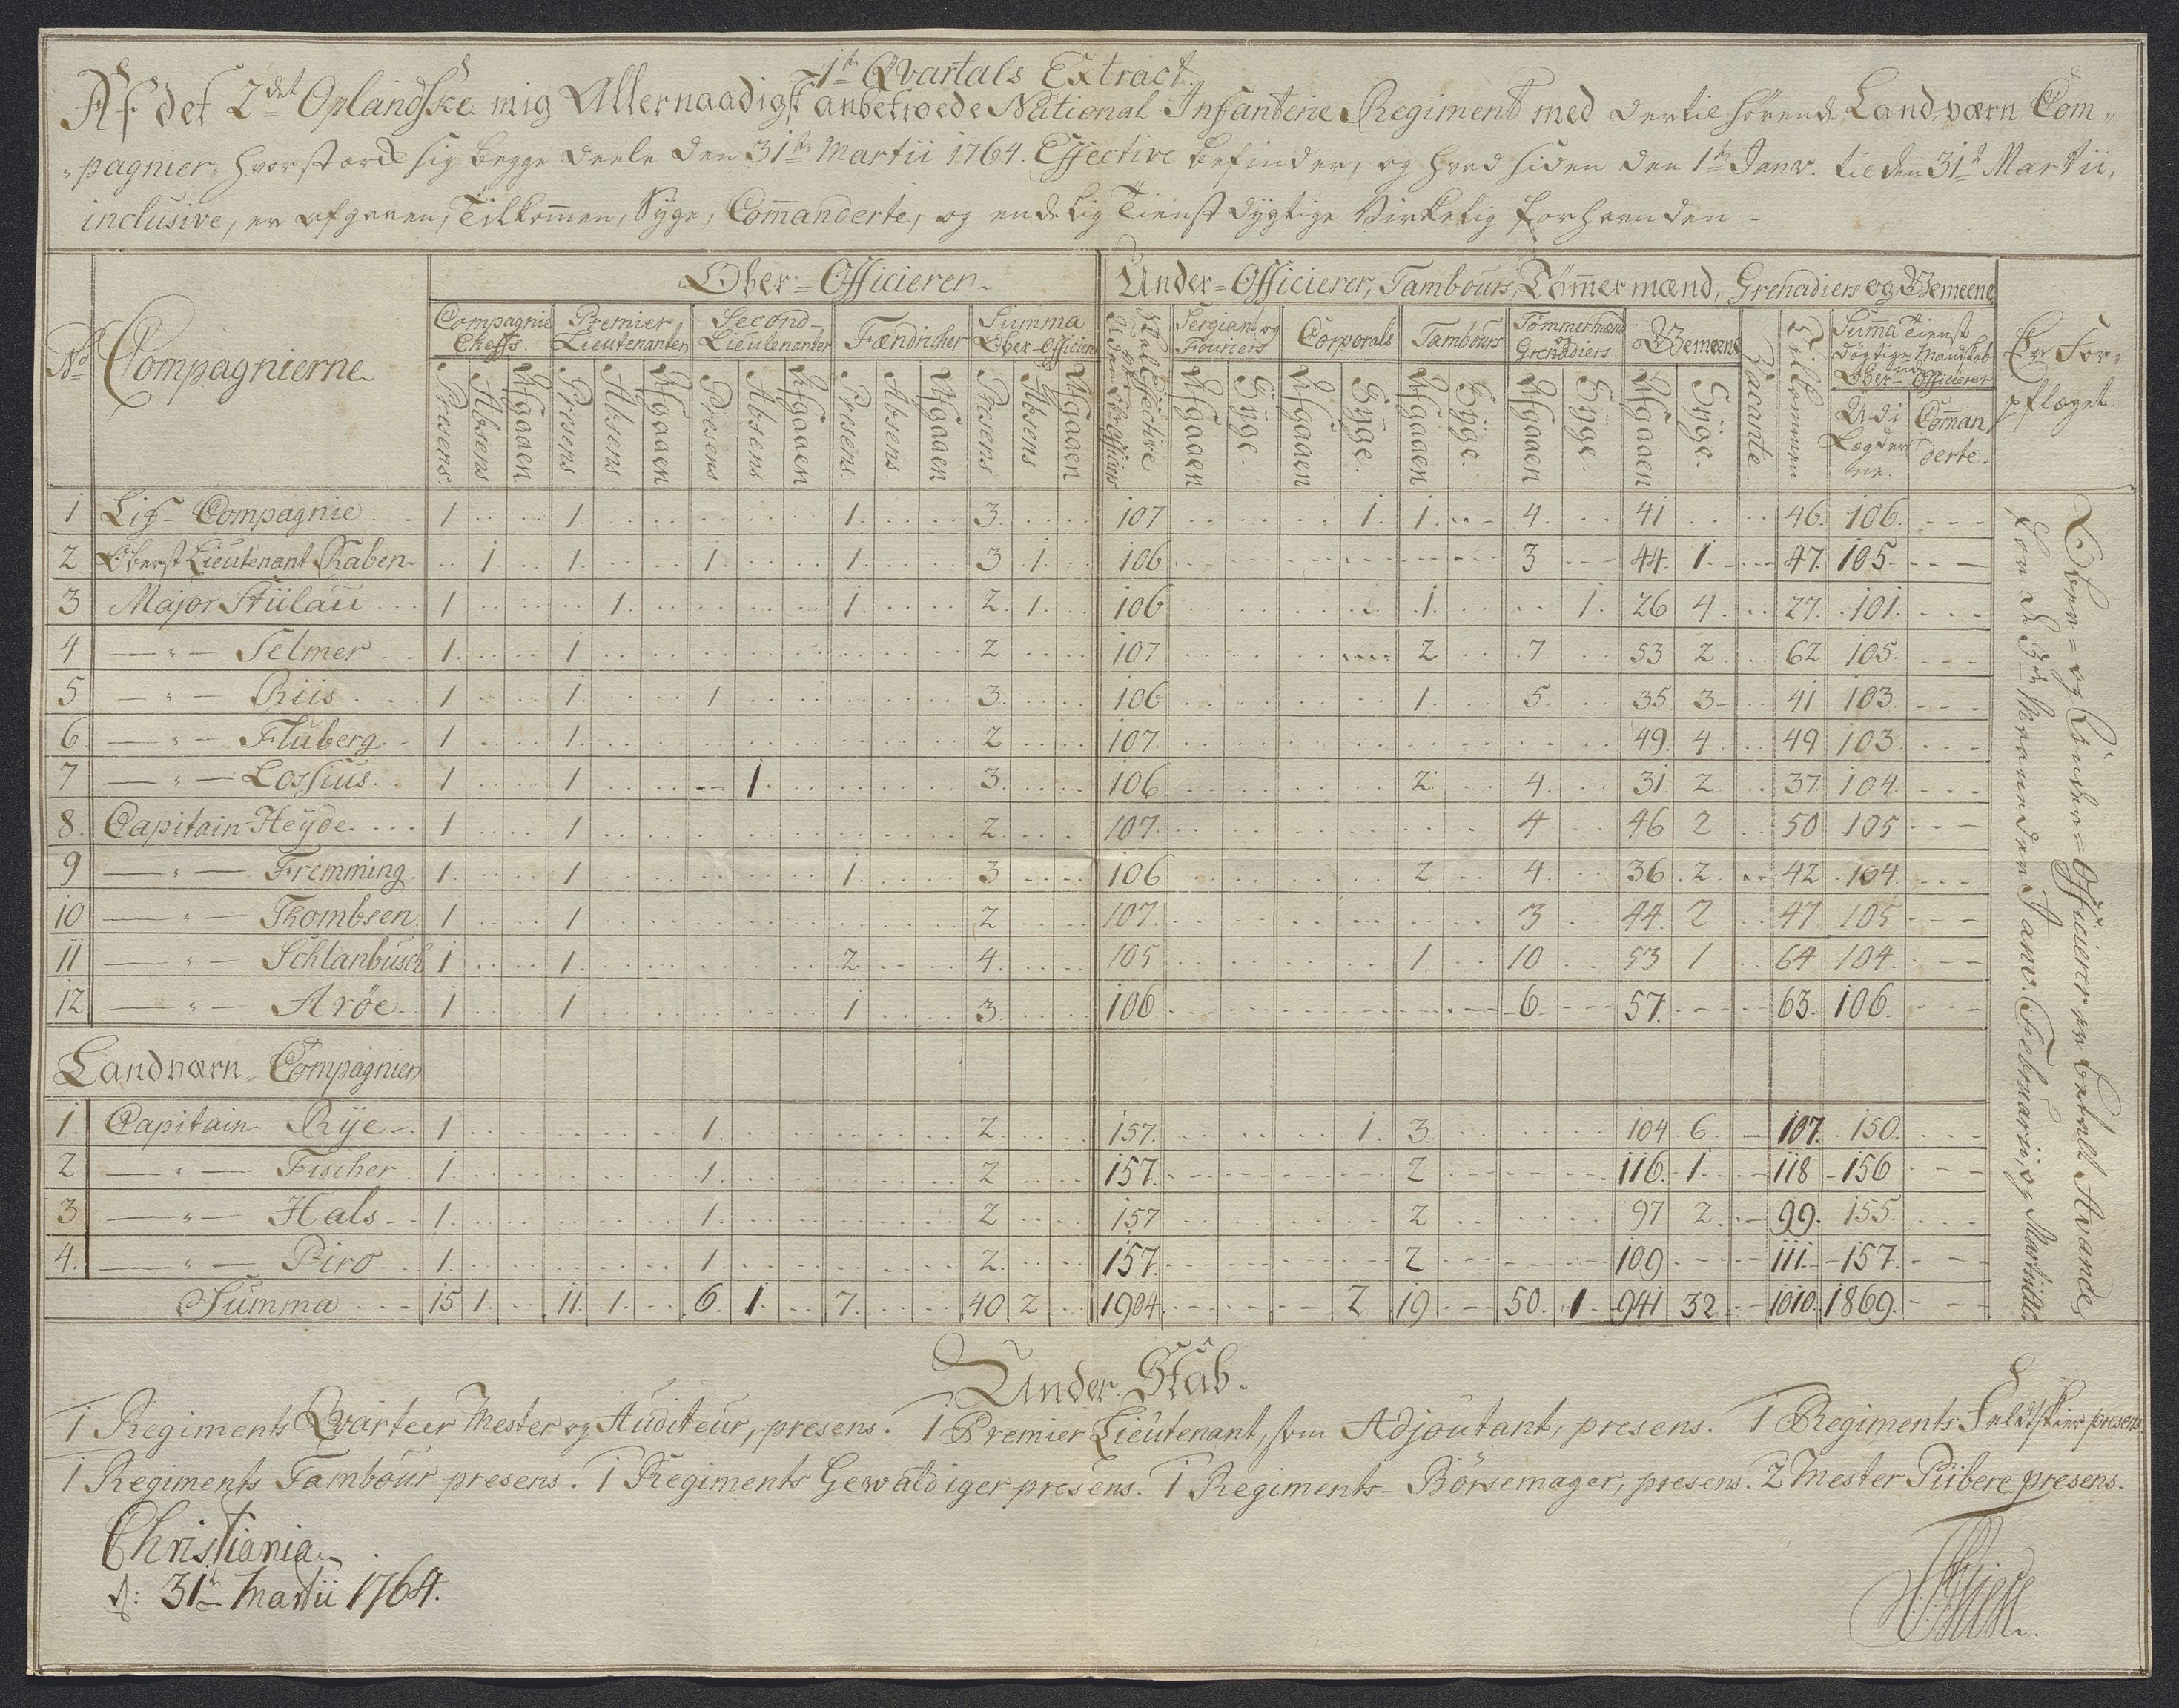 1te Qvartals Extract.
Af det 2det Oplandske mig Allernaadigst anbetroede National Infanterie Regiment med dertil hørende Land-værn Com-
pagnier, hvorstærck sig begge deele den 31te Martii 1764. Effective befinder, og hvad siden den 1te Janv. til den 31te Martii,
inclusive, er afgaaen, Tilkom̄en, Syge, Com̄anderte, og endelig Tienst dygtige Virkelig forhaanden -
No
Compagnierne
Ober-Officierer
Under-Officierer, Tambours, Tøm̄ermænd, Grenadiers og Gemeene
Er For-
pfleget.
Compagnie Cheffs.
Premier Lieutenanter
Second-Lieutenanter
Fændricher
Summa Ober-Officierer
Skal Effective uden Ober Officiers
Sergiant og Fouriers
Corporals
Tambours
Tømmermænd og Grenadiers
Gemeene
Vacante
Tilkommen
Sum̄a Tienst dygtige Mandskab uden Ober-Officierer
Presens Absens Afgaaen Presens Absens Afgaaen Presens Absens Afgaaen Presens Absens Afgaaen Presens Absens Afgaaen
Afgaaen Syge. Afgaaen Syge. Afgaaen Syge. Afgaaen Syge. Afgaaen Syge.
Udi Lægder ne.
Com̄an derte.
1 Lif-Compagnie 1 1 1 3 107 1 1 4 41 46 106
2 Oberst Lieutenant Raben 1 1 1 1 3 1 106 3 44 1 47 105
3 Major Stülau 1 1 1 2 1 106 1 1 26 4 27 101
4 — " — Selmer 1 1 2 107 2 7 53 2 62 105
5 — " — Riis 1 1 1 3 106 1 5 35 3 41 103
6 — " — Fluberg 1 1 2 107 49 4 49 103
7 — " — Lossius 1 1 1 3 106 2 4 31 2 37 104
8 Capitain Heyde 1 1 2 107 4 46 2 50 105
9 — " — Fremming 1 1 1 3 106 2 4 36 2 42 104
10 — " — Thombsen 1 1 2 107 3 44 2 47 105
11 — " — Schlanbusch 1 1 2 4 105 1 10 53 1 64 104
12 — " — Arøe 1 1 1 3 106 6 57 63 106
Landværn-Compagnier
1 Capitain Rye 1 1 2 157 1 3 104 6 107 150
2 — " — Fischer 1 1 2 157 2 116 1 118 156
3 — " — Hals 1 1 2 157 2 97 2 99 155
4 — " — Piro 1 1 2 157 2 109 111 157
Summa 15 1 11 1 6 1 7 40 2 1904 2 19 50 1 941 32 1010 1869
Ober- og Under-Officierer er betalt Avancde
for de 3de Maaneder Janv. Februarii, og Martii
Under Stab.
1 Regiments Qvarteer Mester og Auditeur, presens. 1 Premier Lieutenant, som Adjoutant, presens. 1 Regiments Feldtskier presens
1 Regiments Tambour presens. 1 Regiments Gewaldiger presens. 1 Regiments-Børsemager, presens. 2 Mester Piibere presens.
Christiania
d: 31te Martii 1764.